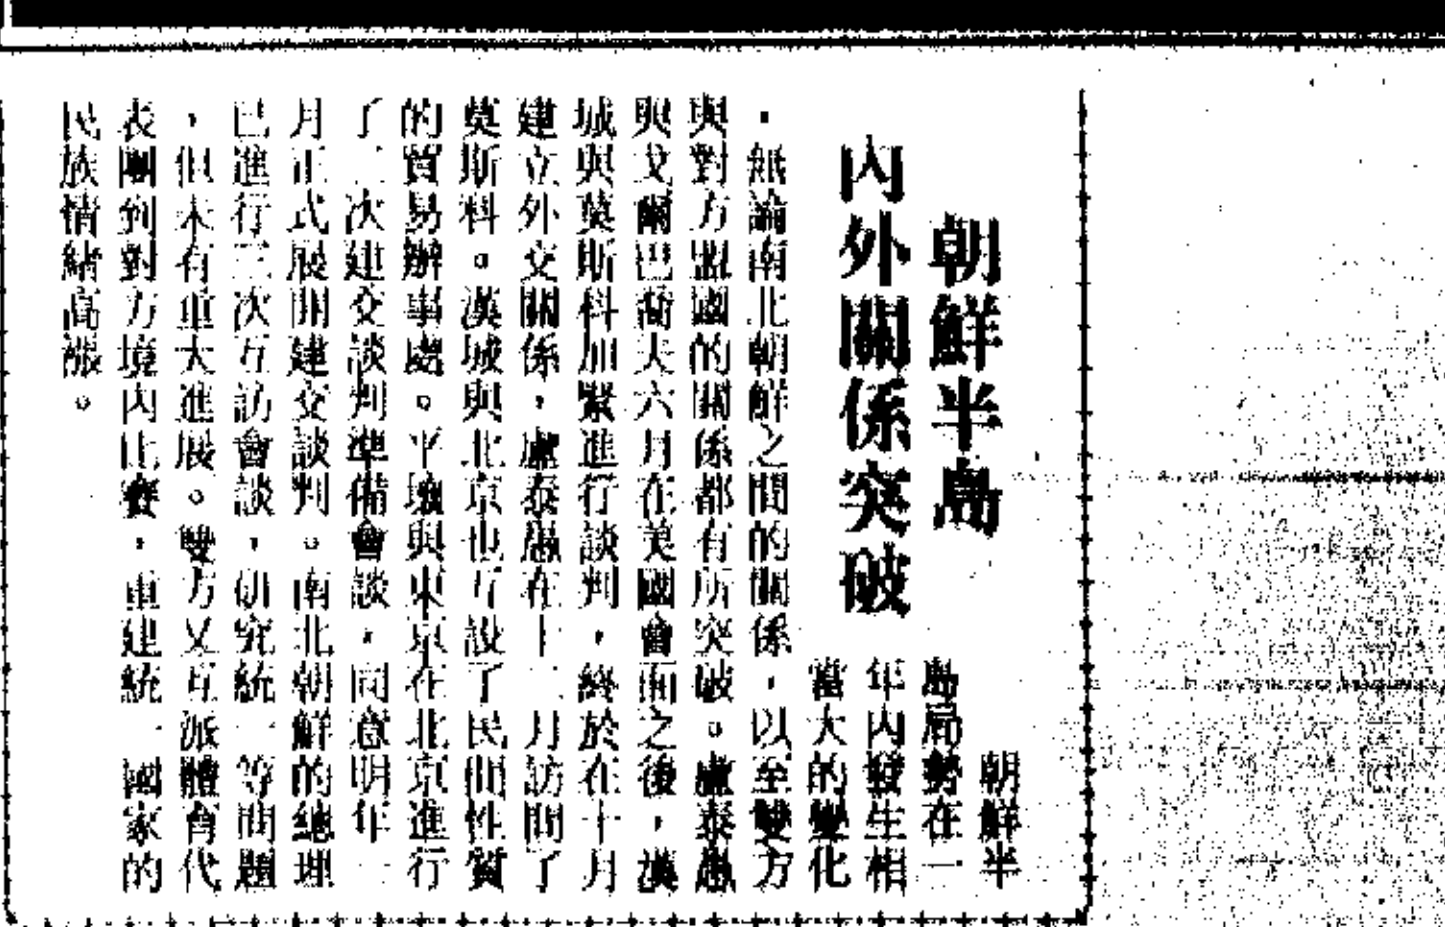 朝鮮半島
內外關係突破
朝鮮半
島局勢在一
年內發生相
當大的變化
，無論南北朝鮮之間的關係，以至雙方
與對方盟國的關係都有所突破。盧泰愚
與戈爾巴喬夫六月在美國會面之後，漢
城與莫斯科加緊進行談判，終於在十月
建立外交關係，盧泰愚在十二月訪問了
莫斯科。漢城與北京也互設了民間性質
的貿易辦事處。平壤與東京在北京進行
了二次建交談判準備會談，同意明年一
月正式展開建交談判。南北朝鮮的總理
已進行三次互訪會談，研究統一等問題
，但未有重大進展。雙方又互派體育代
表團到對方境內比賽，重建統一國家的
民族情緒高漲。